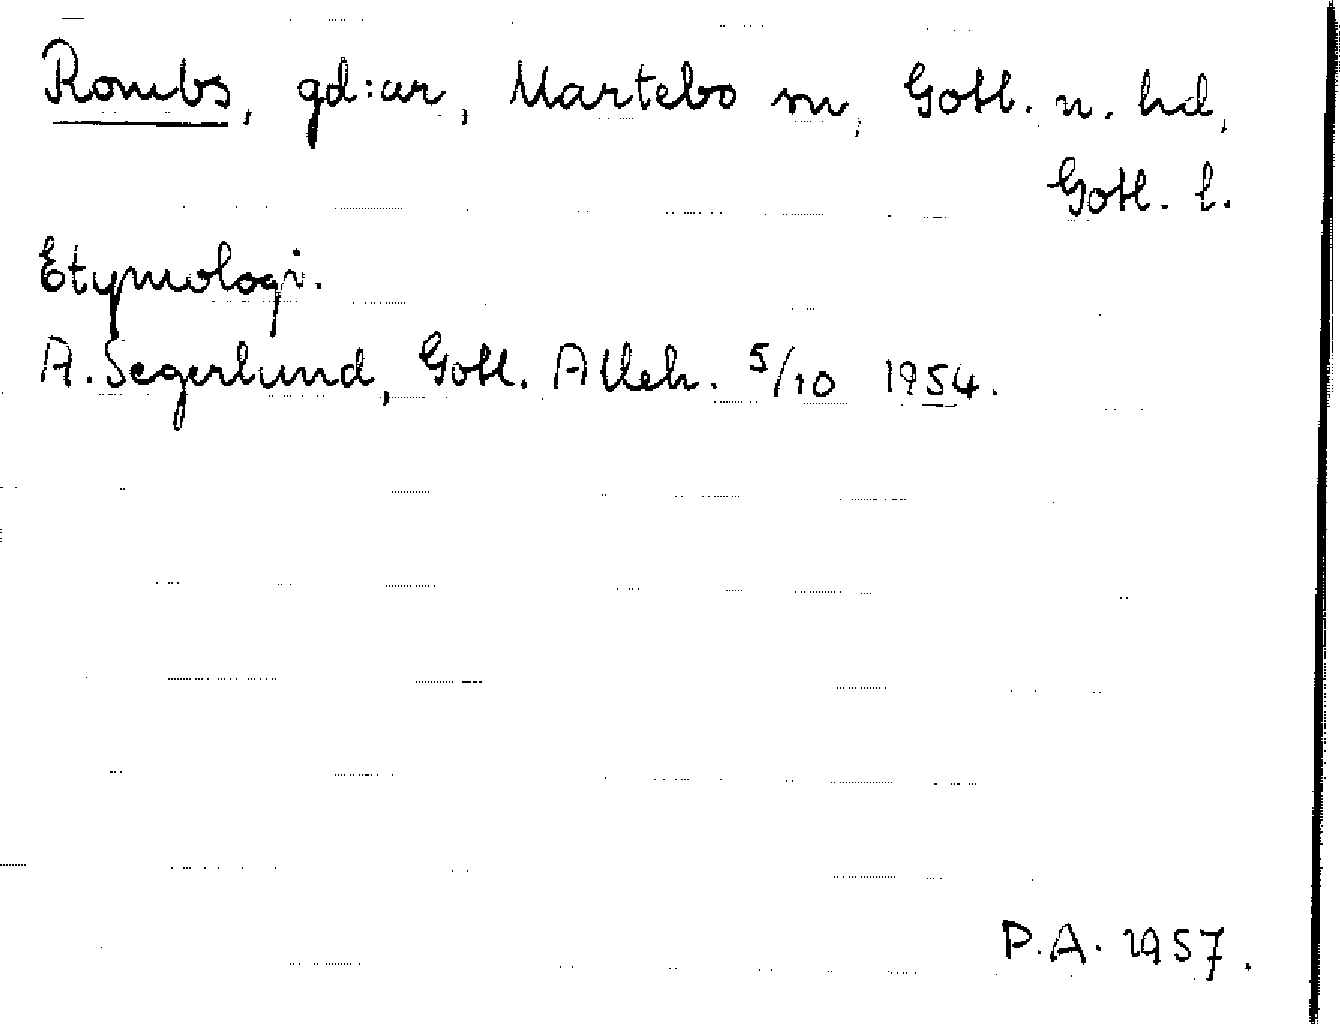 Rombs, gd:ar, Martebo sn, Gotl. n. hd,
Gotl. l.
Etymologi.
A. Segerlund, Gotl. Alleh. 5/10 1954.
P.A. 1957.